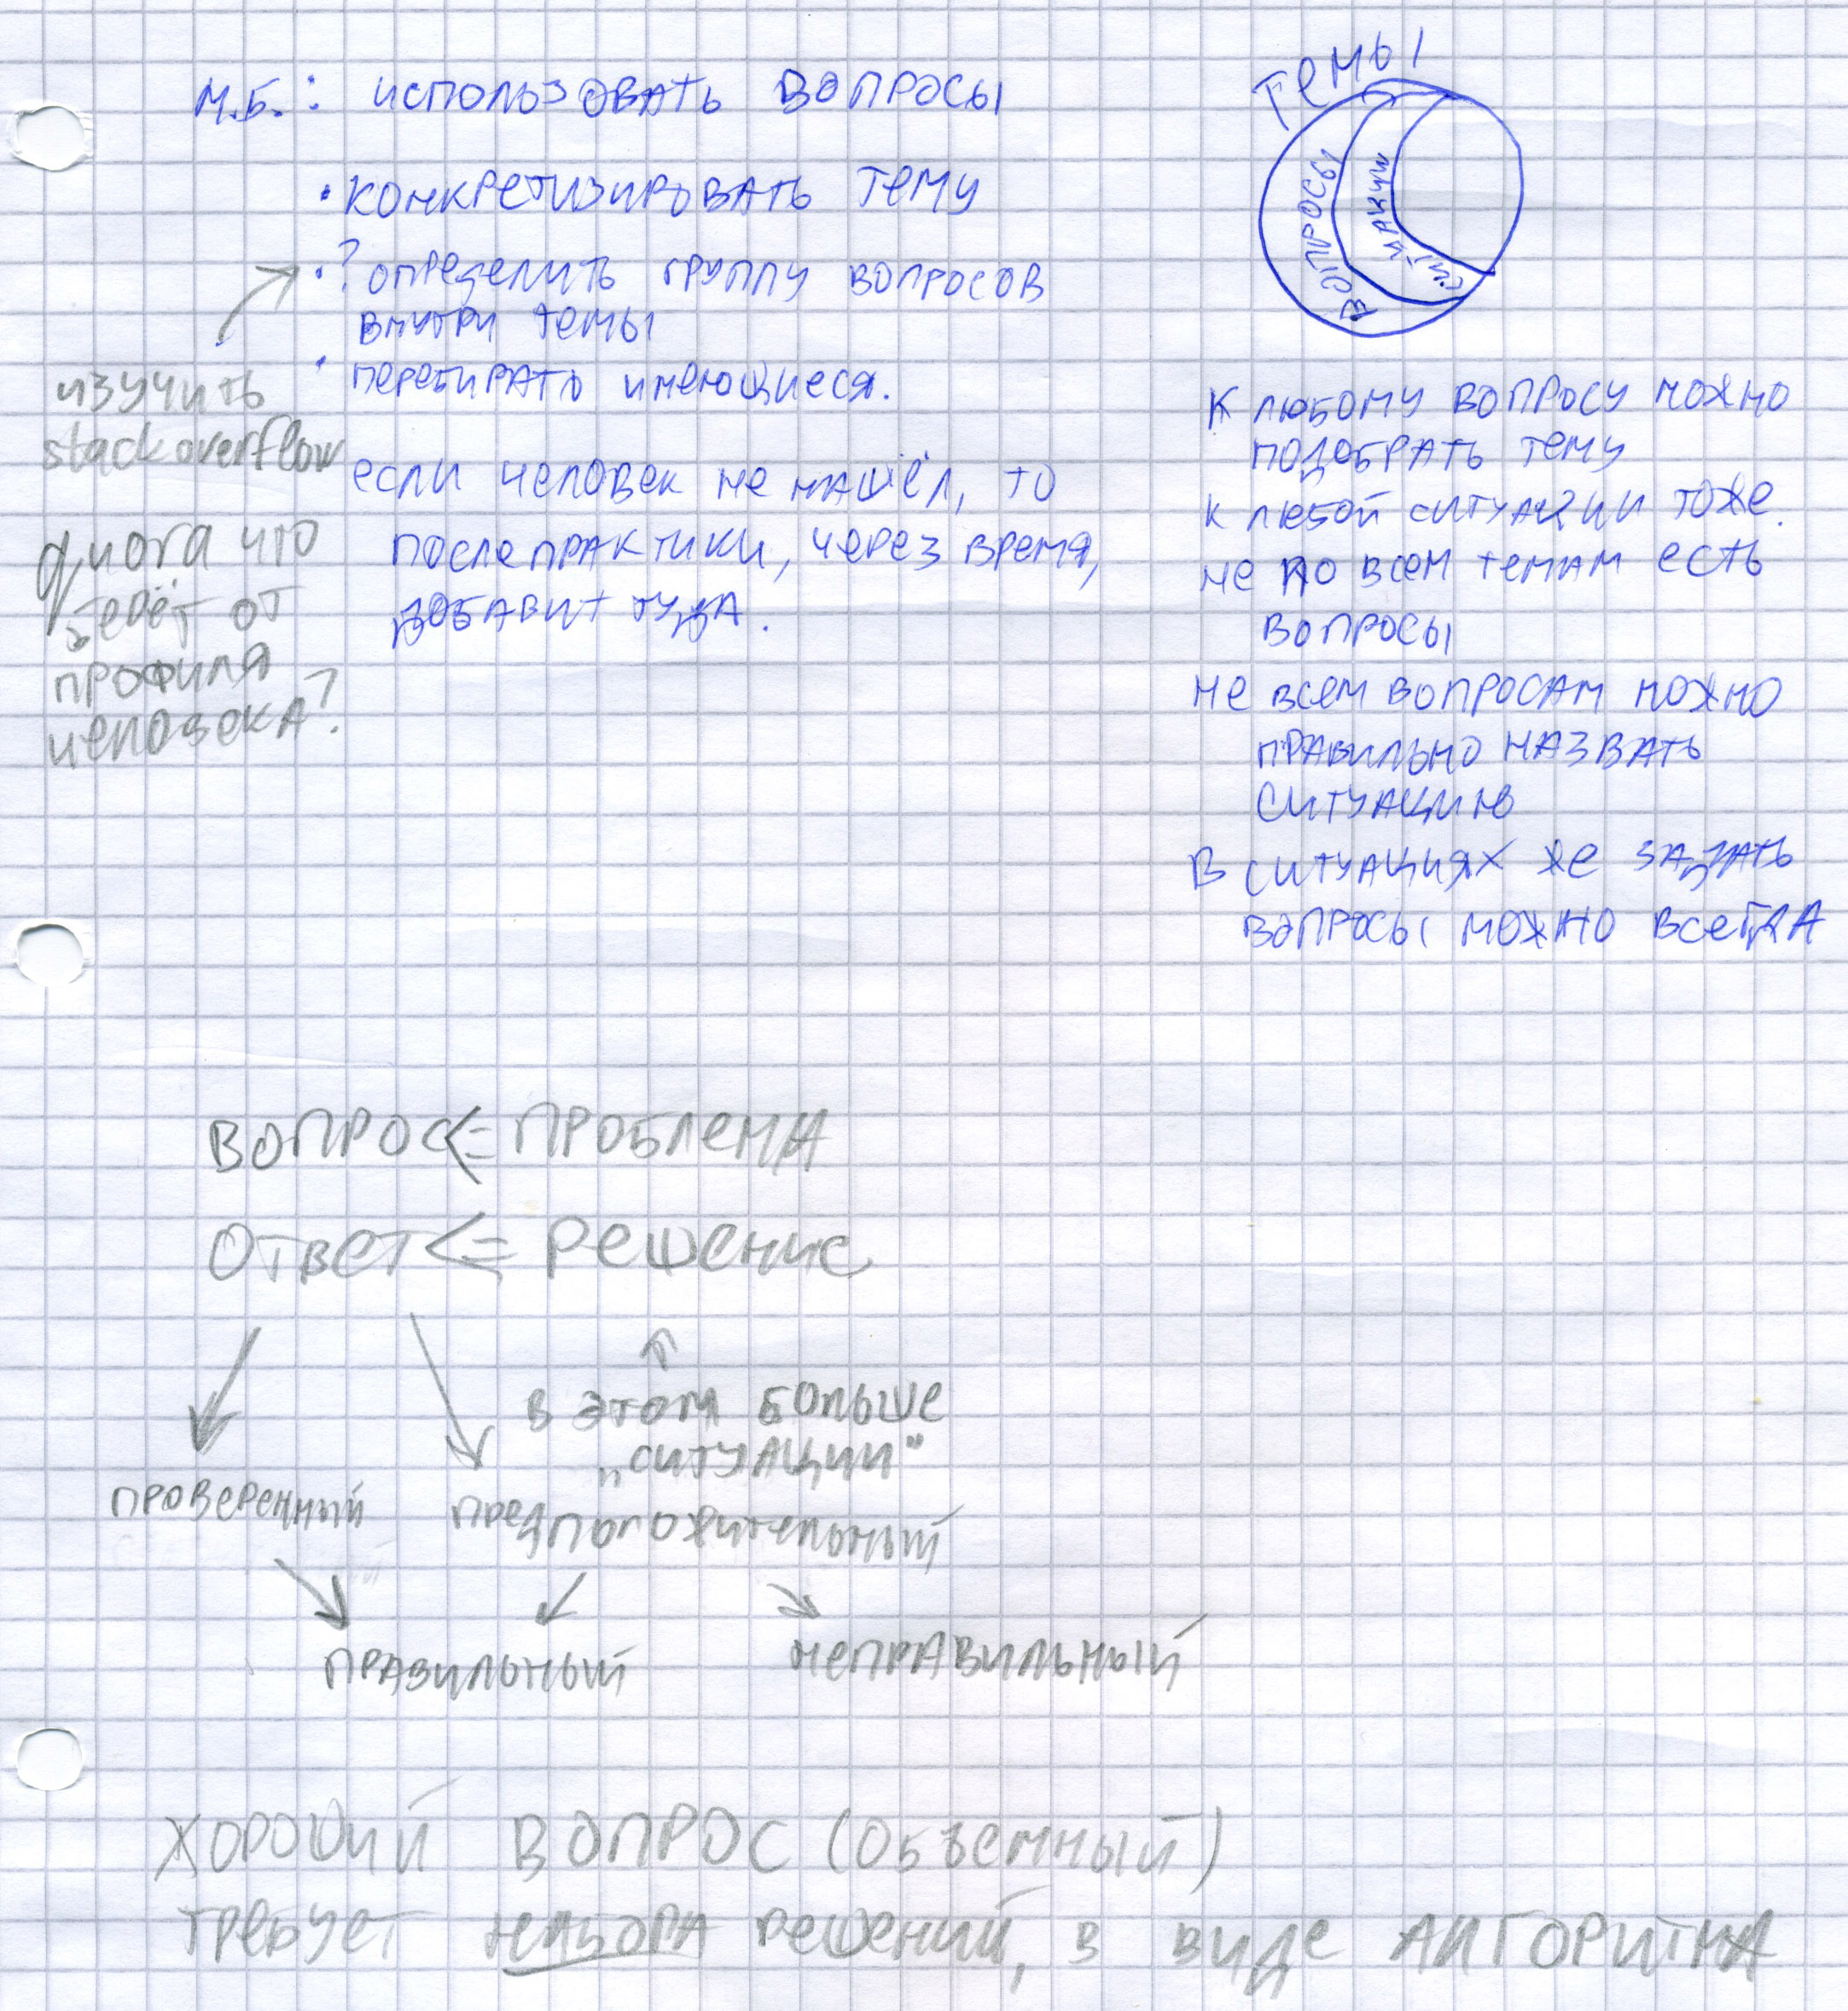 М.Б.: использовать вопросы
• конкретизировать тему
•? определить группу вопросов
внутри темы
• перебирать имеющиеся.
если человек не нашёл, то
после практики, через время,
добавит туда.
изучить
stackoverflow
quora что
берёт от
профиля
человека?
Темы
вопросы
ситуации
к любому вопросу можно
подобрать тему
к любой ситуации тоже.
не по всем темам есть
вопросы
не всем вопросам можно
правильно назвать
ситуацию
в ситуациях же задать
вопросы можно всегда
вопрос <= проблема
ответ <= решение
в этом больше
„ситуации“
проверенный
предположительный
правильный
неправильный
хороший вопрос (объемный)
требует набора решений, в виде алгоритма